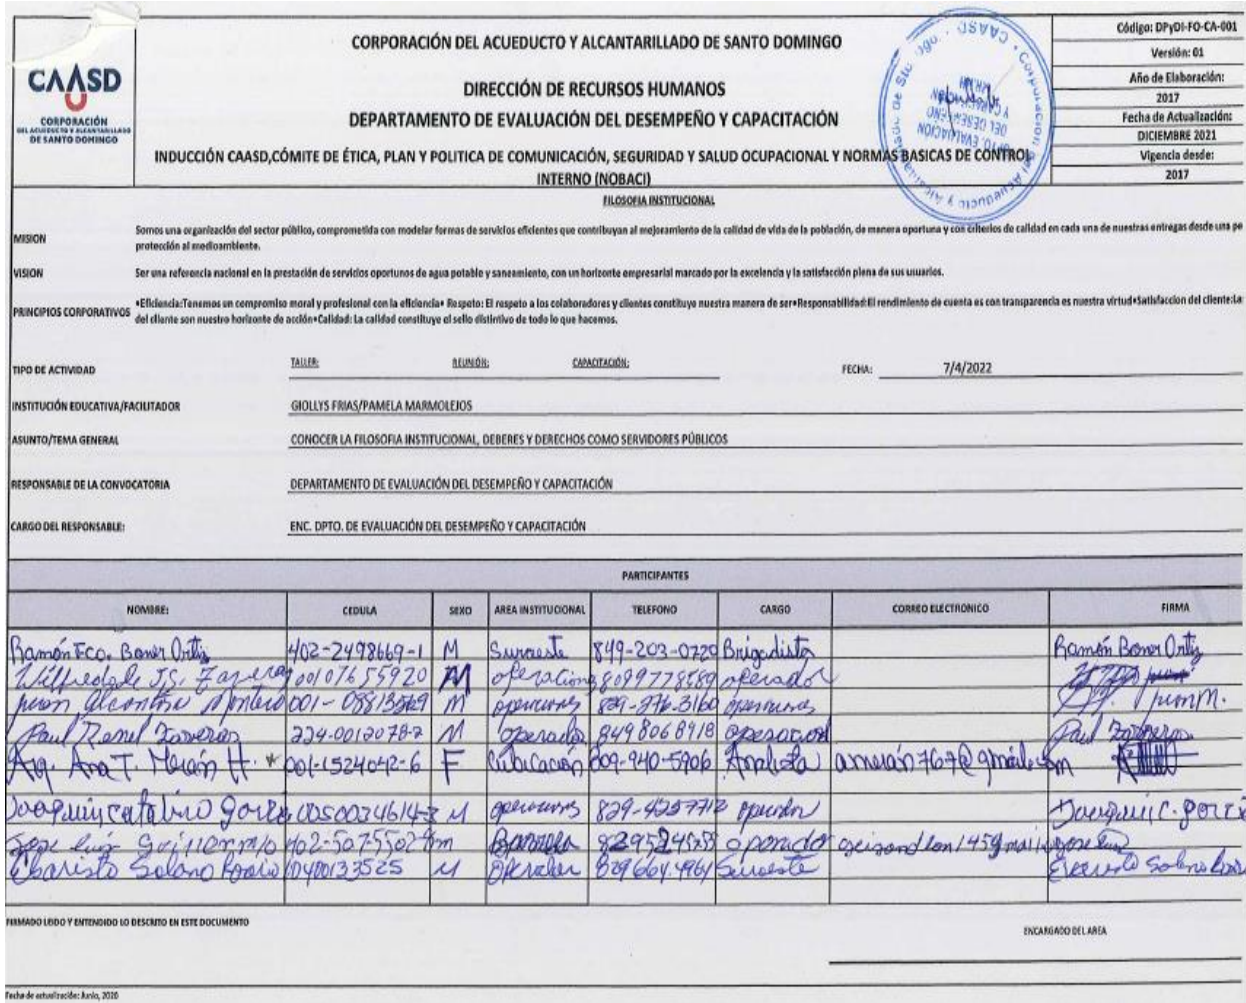 CAASD
CORPORACIÓN
DEL ACUEDUCTO Y ALCANTARILLADO
DE SANTO DOMINGO
CORPORACIÓN DEL ACUEDUCTO Y ALCANTARILLADO DE SANTO DOMINGO
DIRECCIÓN DE RECURSOS HUMANOS
DEPARTAMENTO DE EVALUACIÓN DEL DESEMPEÑO Y CAPACITACIÓN
INDUCCIÓN CAASD,CÓMITE DE ÉTICA, PLAN Y POLITICA DE COMUNICACIÓN, SEGURIDAD Y SALUD OCUPACIONAL Y NORMAS BASICAS DE CONTROL
INTERNO (NOBACI)
Código: DPyDI-FO-CA-001
Versión: 01
Año de Elaboración:
2017
Fecha de Actualización:
DICIEMBRE 2021
Vigencia desde:
2017
FILOSOFIA INSTITUCIONAL
MISION
Somos una organización del sector público, comprometida con modelar formas de servicios eficientes que contribuyan al mejoramiento de la calidad de vida de la población, de manera oportuna y con criterios de calidad en cada una de nuestras entregas desde una pe
protección al medioambiente.
VISION
Ser una referencia nacional en la prestación de servicios oportunos de agua potable y saneamiento, con un horizonte empresarial marcado por la excelencia y la satisfacción plena de sus usuarios.
PRINCIPIOS CORPORATIVOS
•Eficiencia:Tenemos un compromiso moral y profesional con la eficiencia• Respeto: El respeto a los colaboradores y clientes constituye nuestra manera de ser•Responsabilidad:El rendimiento de cuenta es con transparencia es nuestra virtud•Satisfaccion del cliente:La
del cliente son nuestro horizonte de acción•Calidad: La calidad constituye el sello distintivo de todo lo que hacemos.
TIPO DE ACTIVIDAD TALLER: REUNIÓN: CAPACITACIÓN: FECHA: 7/4/2022
INSTITUCIÓN EDUCATIVA/FACILITADOR GIOLLYS FRIAS/PAMELA MARMOLEJOS
ASUNTO/TEMA GENERAL CONOCER LA FILOSOFIA INSTITUCIONAL, DEBERES Y DERECHOS COMO SERVIDORES PÚBLICOS
RESPONSABLE DE LA CONVOCATORIA DEPARTAMENTO DE EVALUACIÓN DEL DESEMPEÑO Y CAPACITACIÓN
CARGO DEL RESPONSABLE: ENC. DPTO. DE EVALUACIÓN DEL DESEMPEÑO Y CAPACITACIÓN
PARTICIPANTES
NOMBRE: CEDULA SEXO AREA INSTITUCIONAL TELEFONO CARGO CORREO ELECTRONICO FIRMA
Ramón Fco. Boner Ortiz 402-2498669-1 M Suroeste 849-203-0720 Brigadista Ramón Boner Ortiz
Wilfredo de Js. 00107655920 M operaciones 8099778589 operador
juan Alcantara Montero M operaciones operaciones juan M.
Paul 224-0012078-2 M operador 8498068918 Paul
Ana T. Merán H. 001-1524042-6 F Cubicación 009-940-5906
Joaquin catalino M operaciones operador Joaquin C.
Jose luis m operado jose luis
Ebaristo Solano 10400133525 M Operador Suroeste Solano
FIRMADO LEIDO Y ENTENDIDO LO DESCRITO EN ESTE DOCUMENTO
ENCARGADO DEL AREA
Fecha de actualización: Junio, 2020